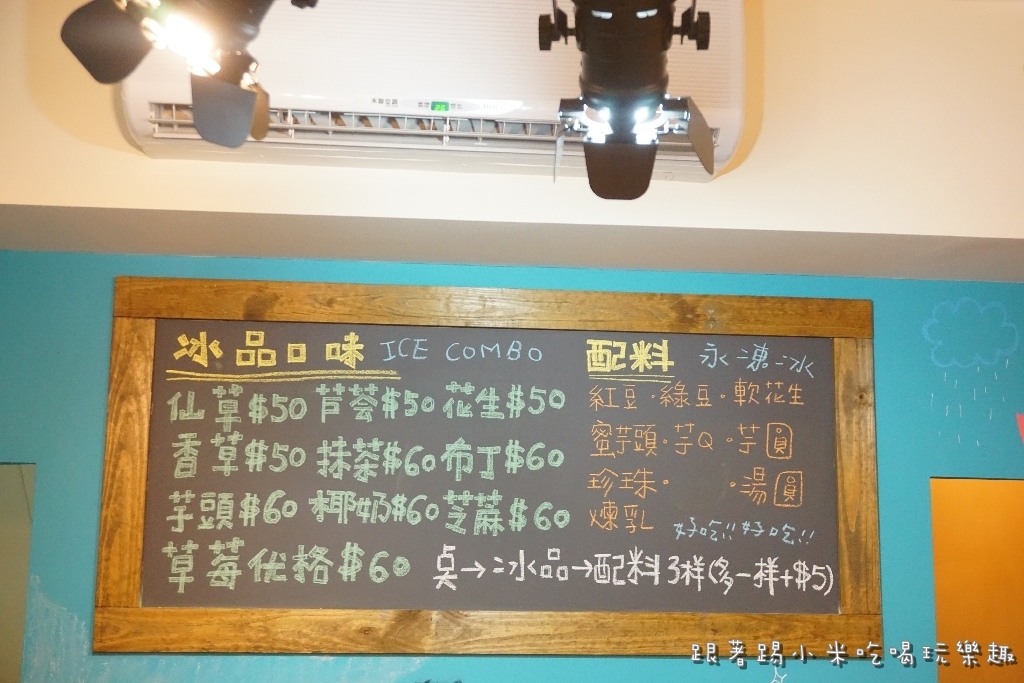 冰品口味 ICE COMBO
仙草$50 芦荟$50 花生$50
香草$50 抹茶$60 布丁$60
芋頭$60 椰奶$60 芝蔴$60
草莓优格$60
配料 永凍冰
紅豆·綠豆·軟花生
蜜芋頭·芋Q·芋圓
珍珠· ·湯圓
煉乳 好吃!!好吃!!
桌→冰品→配料3样(多一样+$5)
跟著踢小米吃喝玩樂趣